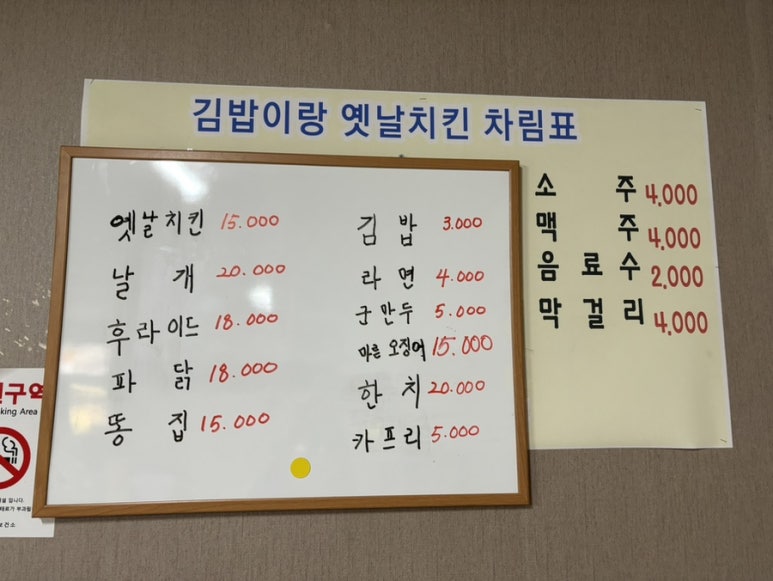 김밥이랑 옛날치킨 차림표
옛날치킨 15.000
날개 20.000
후라이드 18.000
파닭 18.000
똥집 15.000
김밥 3.000
라면 4.000
군만두 5.000
마른오징어 15.000
한치 20.000
카프리 5.000
소주 4,000
맥주 4,000
음료수 2,000
막걸리 4,000
king Area